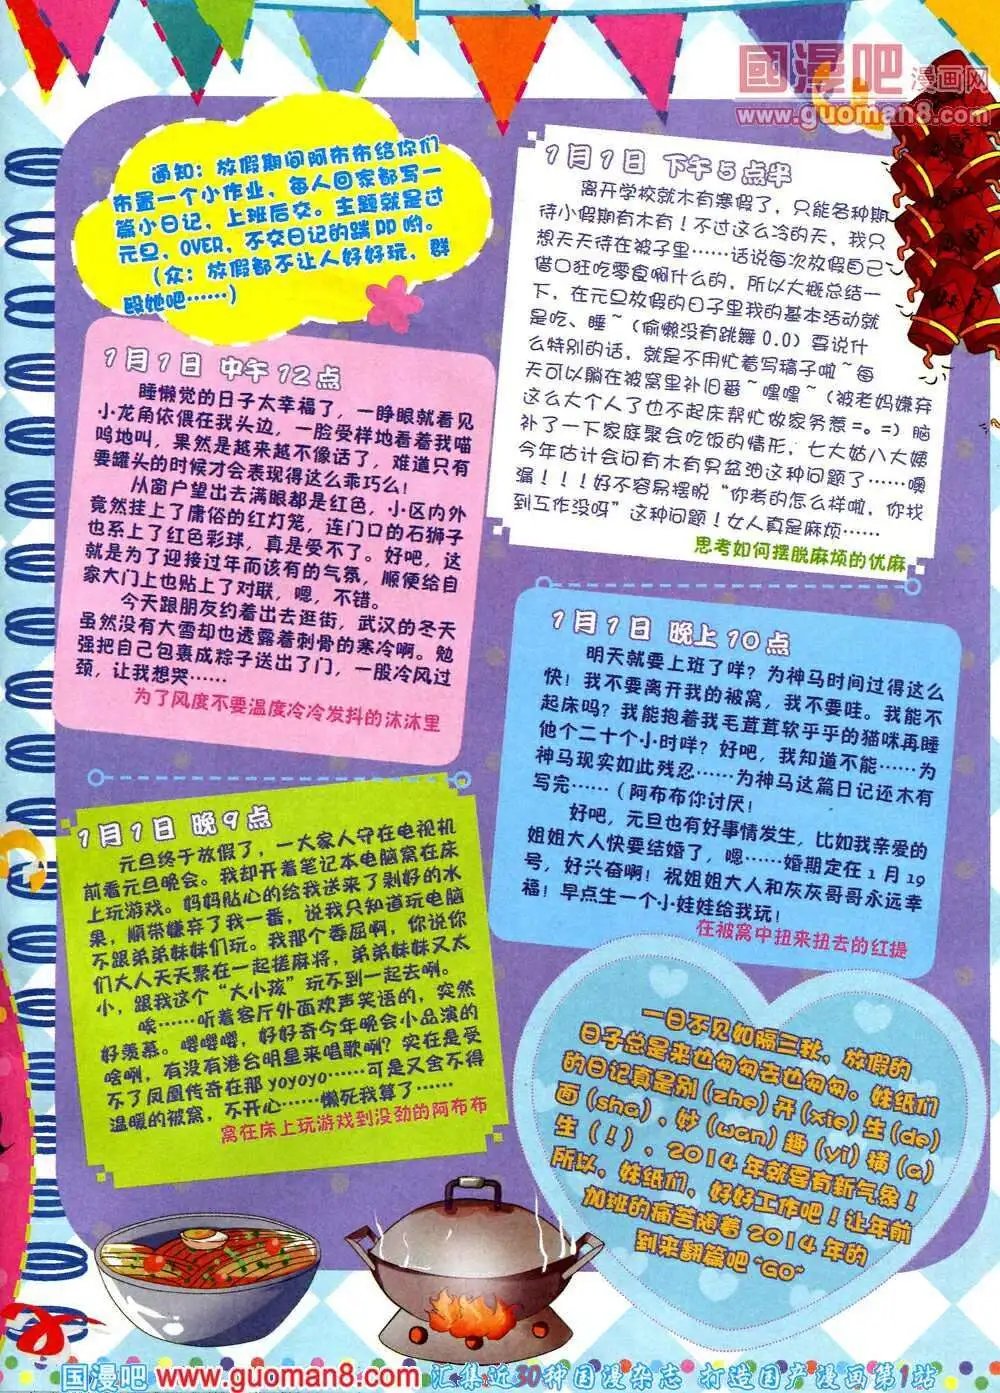 國漫吧漫画网
www.guoman8.com
通知：放假期间阿布布给你们
布置一个小作业，每人回家都写一
篇小日记，上班后交。主题就是过
元旦，OVER，不交日记的踢DD哟。
（众：放假都不让人好好玩，群
殴她吧……）
1月1日 中午12点
睡懒觉的日子太幸福了，一睁眼就看见
小龙角依偎在我头边，一脸受样地看着我喵
呜地叫，果然是越来越不像话了，难道只有
要罐头的时候才会表现得这么乖巧么！
从窗户望出去满眼都是红色，小区内外
竟然挂上了庸俗的红灯笼，连门口的石狮子
也系上了红色彩球，真是受不了。好吧，这
就是为了迎接过年而该有的气氛，顺便给自
家大门上也贴上了对联，嗯，不错。
今天跟朋友约着出去逛街，武汉的冬天
虽然没有大雪却也透露着刺骨的寒冷啊。勉
强把自己包裹成粽子送出了门，一股冷风过
颈，让我想哭……
为了风度不要温度冷冷发抖的沐沐里
1月1日 晚9点
元旦终于放假了，一大家人守在电视机
前看元旦晚会。我却开着笔记本电脑窝在床
上玩游戏。妈妈贴心的给我送来了剥好的水
果，顺带嫌弃了我一番，说我只知道玩电脑
不跟弟弟妹妹们玩。我那个委屈啊，你说你
们大人天天聚在一起搓麻将，弟弟妹妹又太
小，跟我这个“大小孩”玩不到一起去咧。
唉……听着客厅外面欢声笑语的，突然
好羡慕。嘤嘤嘤，好好奇今年晚会小品演的
啥咧，有没有港台明星来唱歌咧？实在是受
不了凤凰传奇在那yoyoyo……可是又舍不得
温暖的被窝，不开心……懒死我算了……
窝在床上玩游戏到没劲的阿布布
1月1日 下午5点半
离开学校就木有寒假了，只能各种期
待小假期有木有！不过这么冷的天，我只
想天天待在被子里……话说每次放假自己
借口狂吃零食啊什么的，所以大概总结一
下，在元旦放假的日子里我的基本活动就
是吃、睡~（偷懒没有跳舞0.0）要说什
么特别的话，就是不用忙着写稿子啦~每
天可以躺在被窝里补旧番~嘿嘿~（被老妈嫌弃
这么大个人了也不起床帮忙做家务惹=。=）脑
补了一下家庭聚会吃饭的情形，七大姑八大姨
今年估计会问有木有男盆油这种问题了……噢
漏！！！好不容易摆脱“你考的怎么样啦，你找
到工作没呀”这种问题！女人真是麻烦……
思考如何摆脱麻烦的优麻
1月1日 晚上10点
明天就要上班了咩？为神马时间过得这么
快！我不要离开我的被窝，我不要哇。我能不
起床吗？我能抱着我毛茸茸软乎乎的猫咪再睡
他个二十个小时咩？好吧，我知道不能……为
神马现实如此残忍……为神马这篇日记还木有
写完……（阿布布你讨厌！
好吧，元旦也有好事情发生，比如我亲爱的
姐姐大人快要结婚了，嗯……婚期定在1月19
号，好兴奋啊！祝姐姐大人和灰灰哥哥永远幸
福！早点生一个小娃娃给我玩！
在被窝中扭来扭去的红提
一日不见如隔三秋，放假的
日子总是来也匆匆去也匆匆。妹纸们
的日记真是别(zhe)开(xie)生(de)
面(sha)、妙(wan)趣(yi)横(a)
生（！），2014年就要有新气象！
所以，妹纸们，好好工作吧！让年前
加班的痛苦随着2014年的
到来翻篇吧~GO~
国漫吧 www.guoman8.com 汇集近30种国漫杂志 打造国产漫画第1站